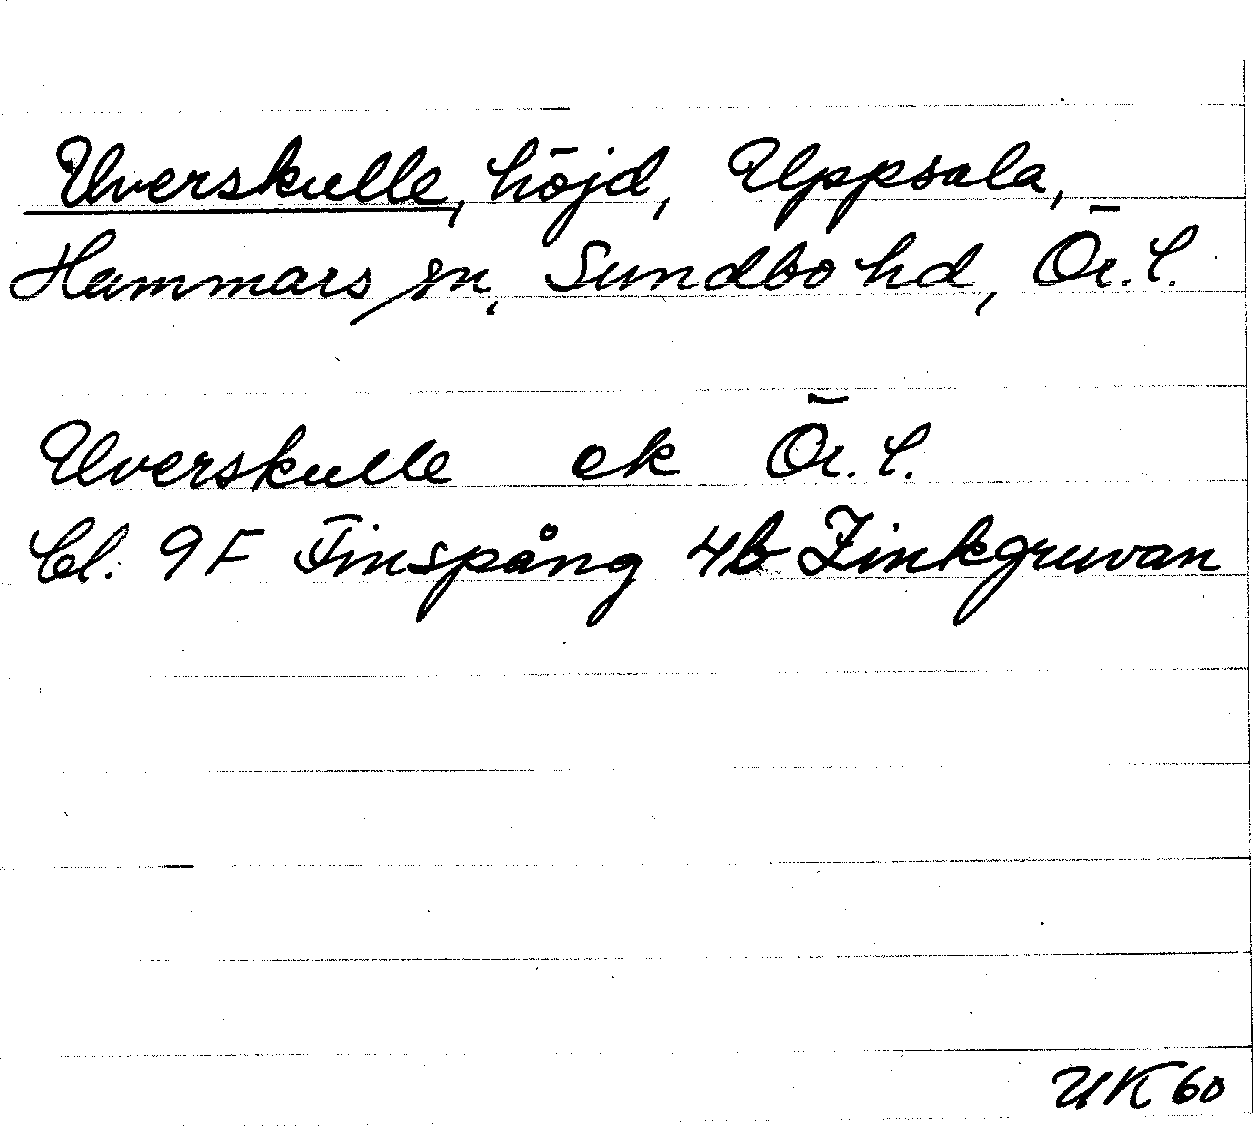 Uverskulle, höjd, Uppsala,
Hammars sn, Sundbo hd, Ör. l.
Uverskulle ek Ör. l.
bl. 9 F Finspång 4b Zinkgruvan
UK 60